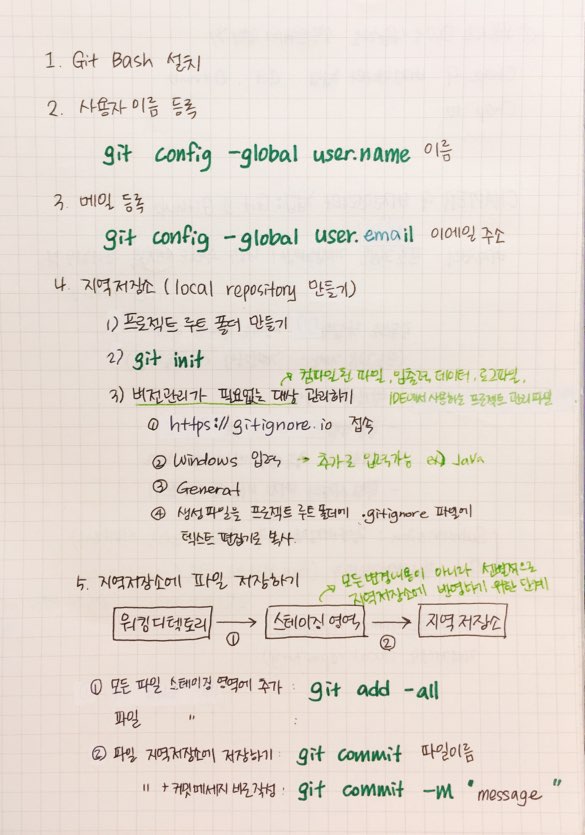 1. Git Bash 설치
2. 사용자 이름 등록
git config -global user.name 이름
3. 메일 등록
git config -global user.email 이메일 주소
4. 지역저장소 (local repository 만들기)
1) 프로젝트 루트 폴더 만들기
2) git init
→ 컴파일된 파일, 입출력, 데이터, 로그파일,
3) 버전관리가 필요없는 대상 관리하기 IDE에서 사용하는 프로젝트 관리파일
① https://gitignore.io 접속
② Windows 입력 → 추가로 입력가능 ex) Java
③ General
④ 생성파일을 프로젝트 루트 폴더에 .gitignore 파일에
텍스트 편집기로 복사.
5. 지역저장소에 파일 저장하기 → 모든 변경내용이 아니라 선별적으로
지역저장소에 반영하기 위한 단계
워킹디렉토리 → 스테이징 영역 → 지역 저장소
① ②
① 모든 파일 스테이징 영역에 추가 : git add -all
파일 " :
② 파일 지역저장소에 저장하기 : git commit 파일이름
" + 커밋메세지 바로작성 : git commit -m "message"